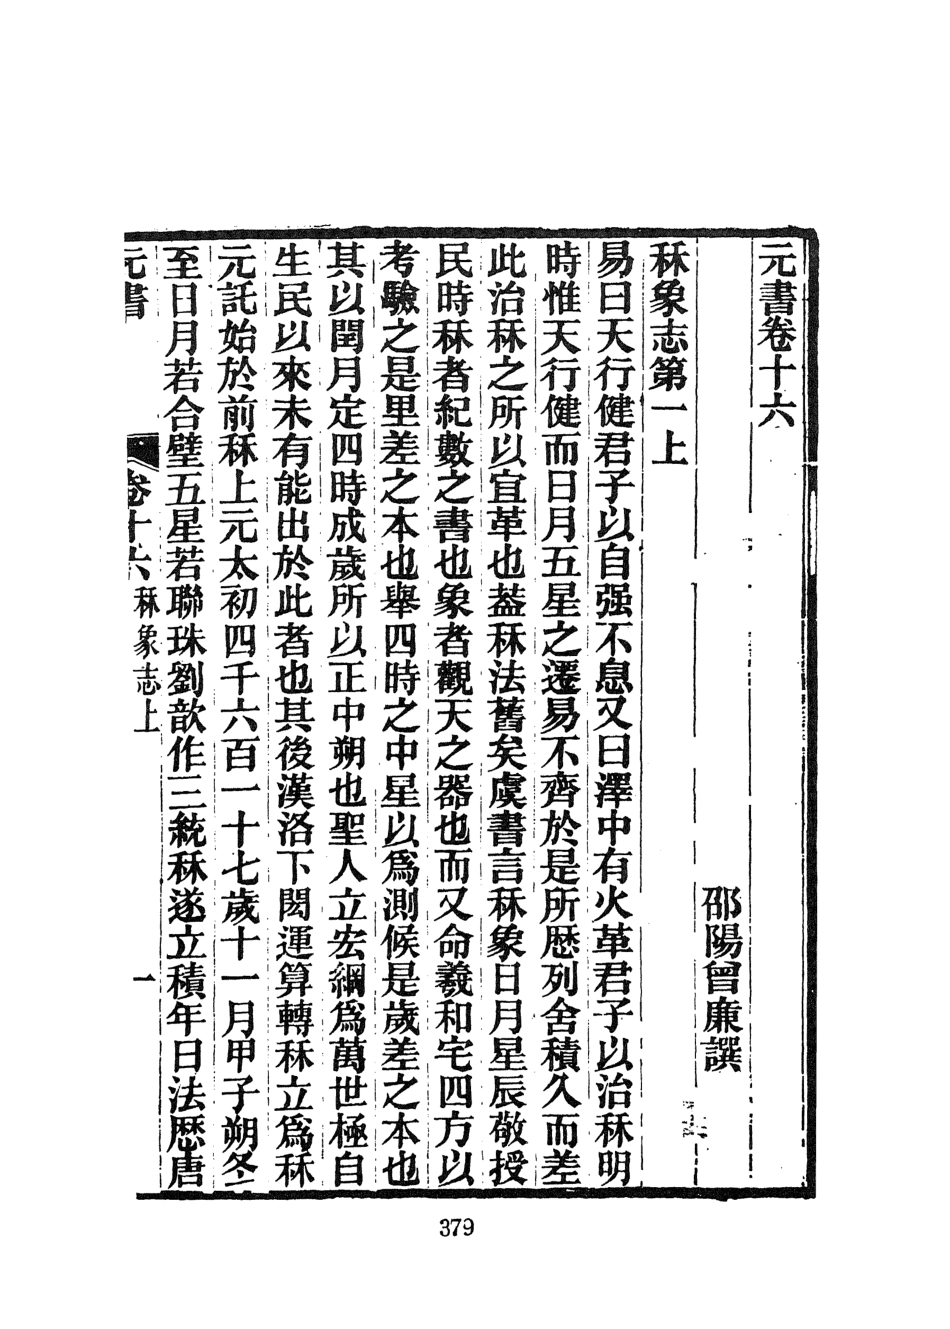 元書卷十六
邵陽曾廉譔
秝象志第一上
易曰天行健君子以自强不息又曰澤中有火革君子以治秝明
時惟天行健而日月五星之遷易不齊於是所歷列舍積久而差
此治秝之所以宜革也葢秝法舊矣虞書言秝象日月星辰敬授
民時秝者紀數之書也象者觀天之器也而又命羲和宅四方以
考驗之是里差之本也舉四時之中星以爲測候是歲差之本也
其以閏月定四時成歲所以正中朔也聖人立宏綱爲萬世極自
生民以來未有能出於此者也其後漢洛下閎運算轉秝立爲秝
元託始於前秝上元太初四千六百一十七歲十一月甲子朔冬
至日月若合璧五星若聯珠劉歆作三統秝遂立積年日法歷唐
元書 卷十六 秝象志上 一
379